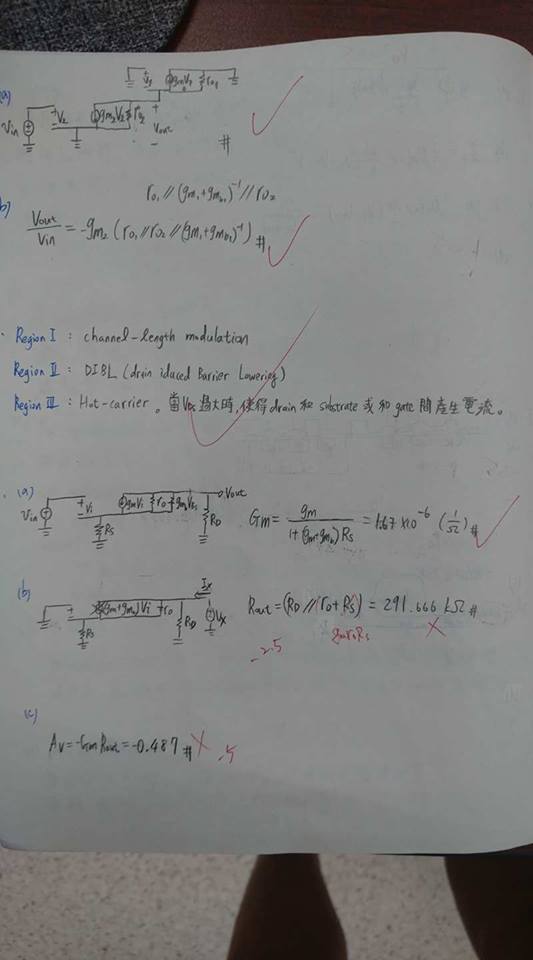 gmV1 ro1
(a)
Vin V2 gm2V2 ro2 Vout #
ro1 // (gm1+gmb1)^-1 // ro2
b)
Vout/Vin = -gm2 (ro1//ro2//(gm1+gmb1)^-1) #
Region I : channel-length modulation
Region II : DIBL (drain iduced Barrier Lowering)
Region III : Hot-carrier 。當VDS過大時,使得drain和substrate或和gate間產生電流。
(a)
Vin Vi gmVi ro Vout
RS RD
Gm = gm/(1+(gm+gmb)RS) = 1.67 x10^-6 (1/Ω) #
(b)
(gm+gmb)Vi ro Ix Vx
RS RD
Rout = (RD // ro + RS) = 291.666 kΩ #
gmroRS
-2.5
(c)
Av = -Gm Rout = -0.487 #
-5